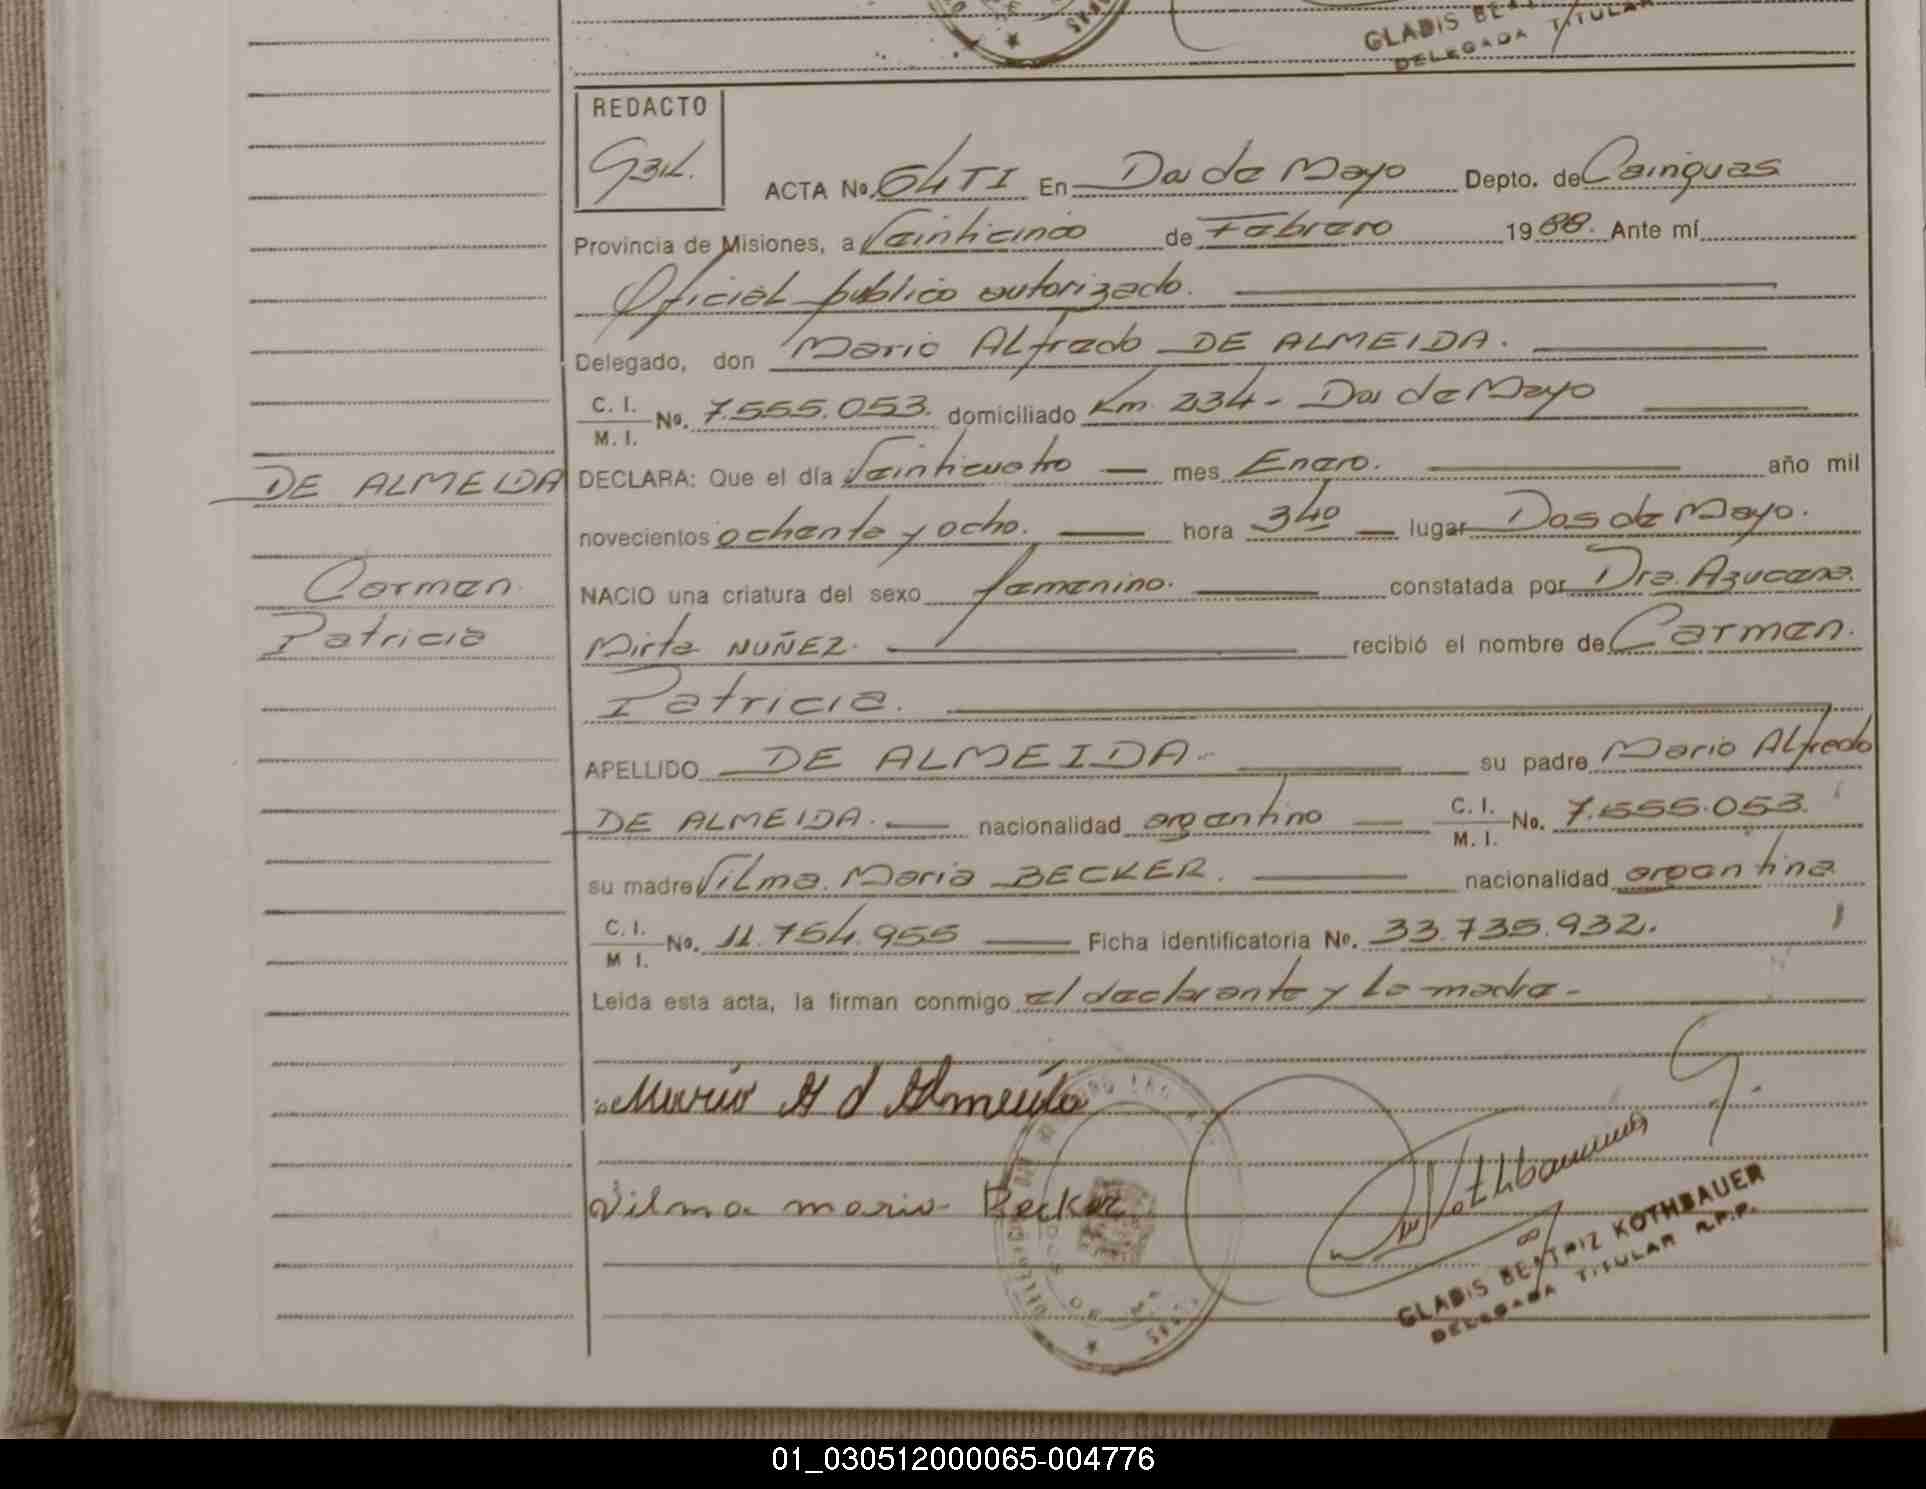 GLADIS BE
DELEGADA TITULAR
REDACTO
ACTA No. 64TI En Dos de Mayo Depto. de Cainguas
Provincia de Misiones, a Veinticinco de Febrero 1988. Ante mí
Oficial publico autorizado.
Delegado, don Mario ALfredo DE ALMEIDA.
C. I.
M. I. No. 7.555.053. domiciliado Km. 234 - Dos de Mayo
DE ALMEIDA
DECLARA: Que el día Veinticuatro mes Enero. año mil
novecientos ochenta y ocho. hora 340 lugar Dos de Mayo.
Carmen.
NACIO una criatura del sexo femenino. constatada por Dra. Azucena
Patricia
Mirta NUÑEZ. recibió el nombre de Carmen.
Patricia.
APELLIDO DE ALMEIDA. su padre Mario ALfredo
DE ALMEIDA. nacionalidad argentino C. I.
M. I. No. 7.555.053.
su madre Vilma Maria BECKER. nacionalidad argentina
C. I.
M I. No. 11.754.955 Ficha identificatoria No. 33.735.932.
Leída esta acta, la firman conmigo el declarante y la madre -
Mario A d Almeida
Vilma maria Becker
Kothbauer
GLADIS BEATRIZ KOTHBAUER
DELEGADA TITULAR R.P.P.
01_030512000065-004776